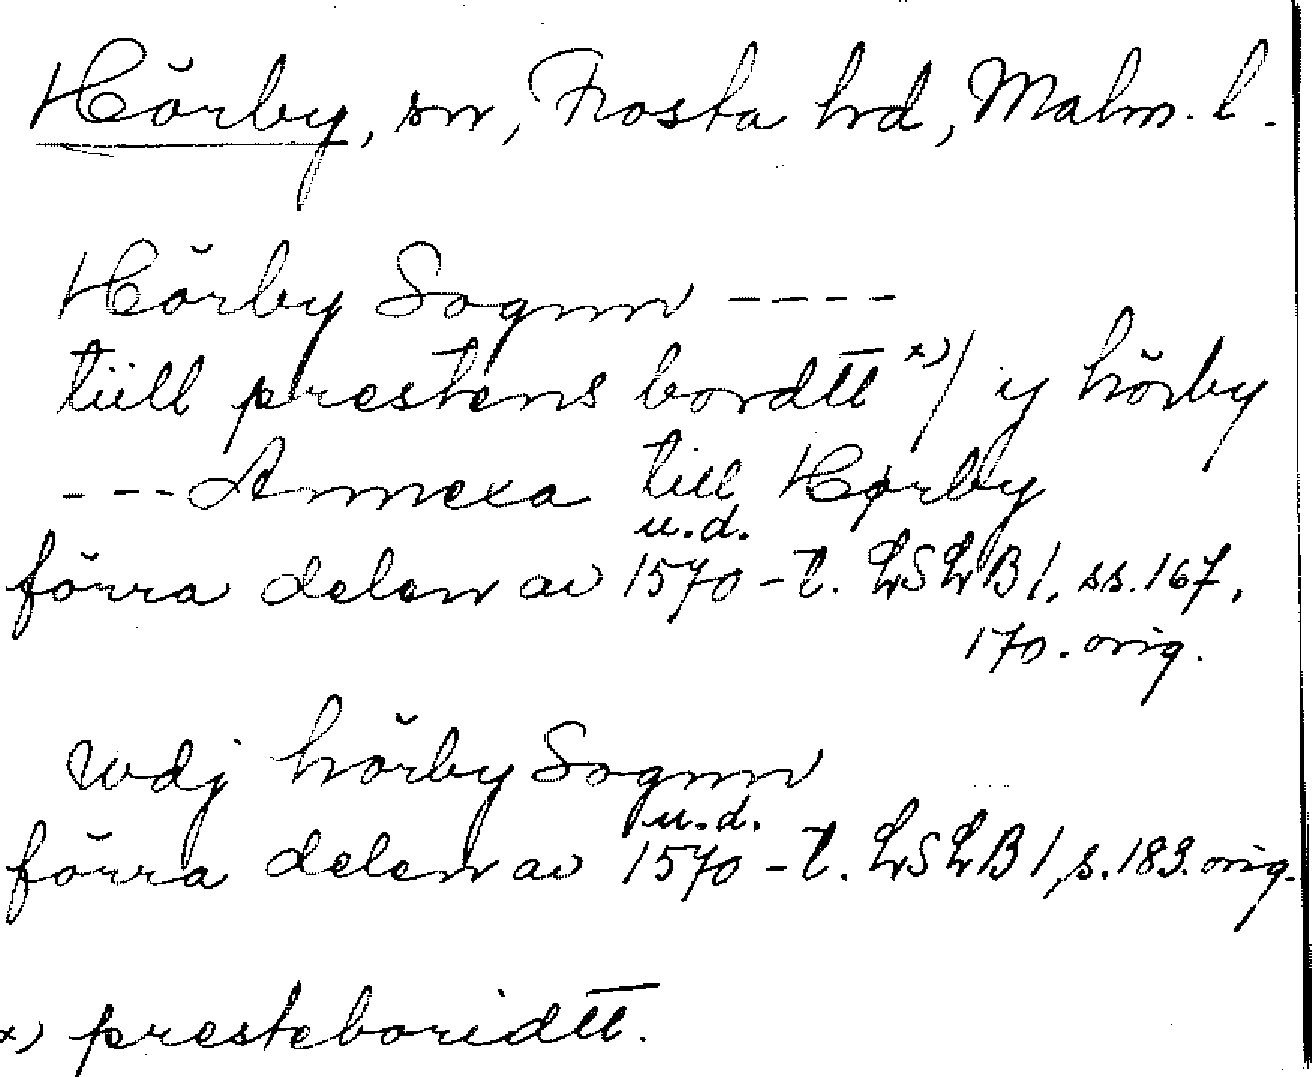 Hörby, sn, Frosta hd, Malm. l.
Hörby Sognn ----
tiill prestens bordtt x)/ y hörby
--- Annexa till Hørby
u.d.
förra delen av 1570-t. LSLB 1, ss. 167,
170. orig.
wdj hörby Sognn
u.d.
förra delen av 1570-t. LSLB 1, s. 183. orig.
x) presteboridtt.